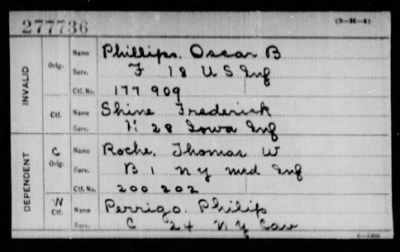 277736
(3-M-4)
INVALID
Orig.
Name Phillips, Oscar B
Serv. F 18 U S Inf
Ctf. No. 177 909
Ctf.
Name Shine Frederick
Serv. H 28 Iowa Inf
DEPENDENT
C
Orig.
Name Roche, Thomas W
Serv. B 1 N Y Mtd Inf
Ctf. No. 200 202
W
Ctf.
Name Perrigo, Philip
Serv. C 24 N Y Cav